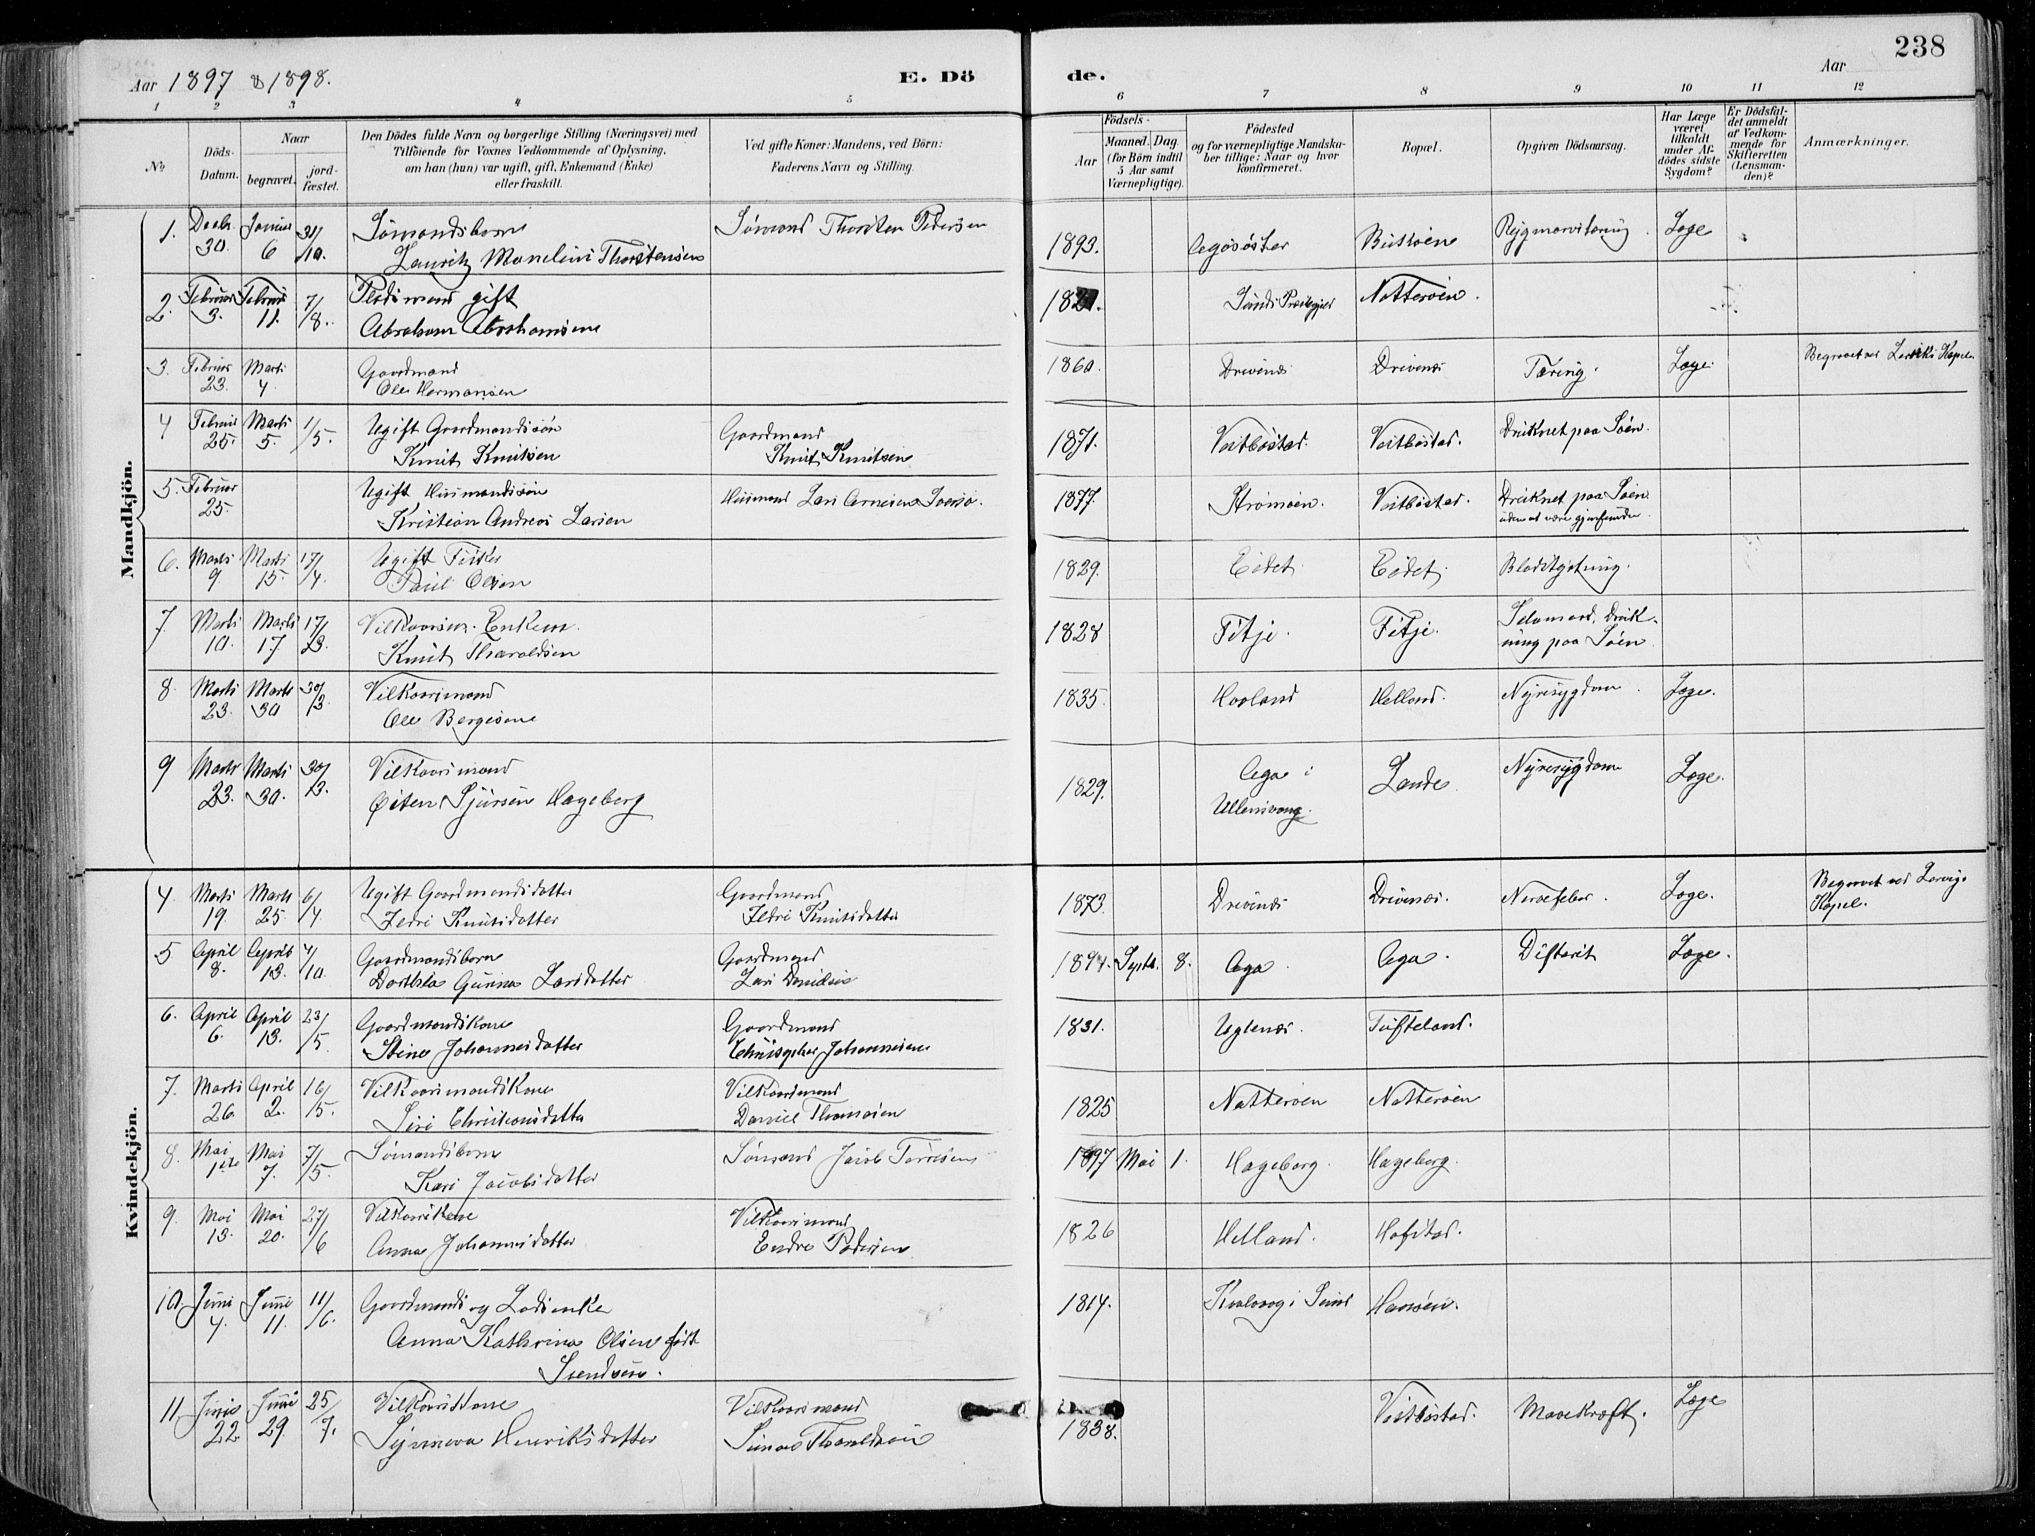 238
Aar 1897 & 1898. E. Dö de. Aar
1 2 3 4 5 6 7 8 9 10 11 12
No
Döds-Datum.
Naar
begravet.
jord-fæstet.
Den Dödes fulde Navn og borgerlige Stilling (Næringsvei) med
Tilföiende for Voxnes Vedkommende af Oplysning,
om han (hun) var ugift, gift, Enkemand (Enke)
eller fraskilt.
Ved gifte Koner: Mandens, ved Börn:
Faderens Navn og Stilling.
Födsels-
Aar
Maaned. Dag.
(for Börn indtil
5 Aar samt
Værnepligtige).
Födested
og for værnepligtige Mandska-
ber tillige: Naar og hvor
konfirmeret.
Bopæl.
Opgiven Dödsaarsag.
Har Læge
været
tilkaldt
under Af-
dödes sidste
Sygdom?
Er Dödsfal-
det anmeldt
af Vedkom-
mende for
Skifteretten
(Lensman-
den)?
Anmærkninger.
Mandkjön.
1. Decbr. 30. Januar 6 31/10. Sømandsbarn Sømand Thorsten Pedersen 1893. Agdøster Rygmarvstæring Læge
Lauritz Thorstensen
2. Februar 3. Februar 11. 7/8. gift Sunds Præstegj. Nattersøen.
Abraham Abrahamsen
3. Februar 23. Marts 4. Gaardmand 1860. Drivenes Drivenes Tæring. Læge. Begravet ved Lerviks Kapel.
Ole Hermansen
4 Februar 25. Marts 5. 1/5. Ugift Gaardmandssøn Gaardmand 1871. Vestbøstad. Vestbøstad. Druknet paa Søen.
Knut Knutsen Knut Knutsen
5. Februar 25. Ugift Husmandssøn Husmand Lars 1877. Strømøen. Vestbøstad. Druknet paa Søen
Kristian Andreas Larsen uden at være gjenfunden.
6. Marts 9 Marts 15. 17/4. Ugift Fisker 1829. Eidet. Eidet. Blodstyrtning.
Paul Olsen
7. Marts 10. Marts 17. 17/3. Enkem. 1828 Fitje. Fitje. Selvmord. Druk-
Knut Tharaldsen ning paa Søen
8. Marts 23. Marts 30 30/3. Vilkaarsmand 1835. Haaland Helland. Nyresygdom. Læge.
Ole Børgesen
9 Marts 23. Marts 30. 30/3. Vilkaarsmand 1829. Aga i Lande. Nyresygdom Læge.
Sjursen Hageberg Ullensvang.
Kvindekjön.
4. Marts 19. Marts 25 6/4 Ugift Gaardmandsdatter Gaardmand 1873. Drivenes Drivenes. Nervefeber. Læge. Begravet ved Lervigs
Zedri Knutsdatter Knutsdatter Kapel.
5 April 8. April 13. 4/10. Gaardmandsbarn Gaardmand 1894. Septb. 8. Aga. Aga. Difterit Læge.
Dorthea Gurina Larsdatter Lars Danielsen
6. April 6. April 13. 23/5. Gaardmandskone Gaardmand 1831. Uglenes. Tufteland.
Stine Johannesdatter Christopher Johannesen
7. Marts 26. April 2. 16/5. Vilkaarsmandskone Vilkaarsmand 1825 Nattersøen Nattersøen
Siri Christiansdatter Daniel Thomasen
8. Mai 1ste Mai 7. 7/5. Sømandsbarn Sømand Jacob Tørresen 1897 Mai 1. Hageberg. Hageberg.
Kari Jacobsdatter
9. Mai 13. Mai 20. 27/6 Vilkaarskone Vilkaarsmand 1826 Helland. Hafstad.
Anna Johannesdatter Endre Pedersen
10. Juni 4. Juni 11. 11/6. Gaardmands og Lodsenke 1814. Kvalvaag i Sund Hansøen.
Anna Kathrina Olsen født
Svendsen.
11. Juni 22. Juni 29. 25/7. Vilkaarskone Vilkaarsmand 1838. Vestbøstad. Mavekræft. Læge
Synneva Henriksdatter Simon Tharaldsen